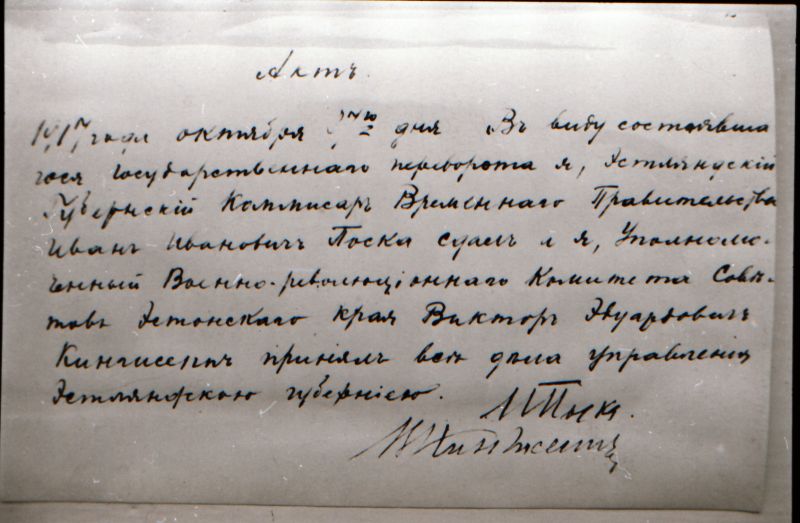 Актъ.
1917 года октября 27го дня Въ виду состоявша
гося государственнаго переворота я, Эстляндскій
Губернскій Коммисаръ Временнаго Правительства
Иванъ Ивановичъ Поска сдалъ и я, Уполномо-
ченный Военно-революціоннаго Комитета Совѣ-
товъ Эстонскаго края Викторъ Эдуардовичъ
Кингисеппъ принялъ всѣ дѣла управленія
Эстляндскою губерніею.
И Поска.
В Кингисеппъ